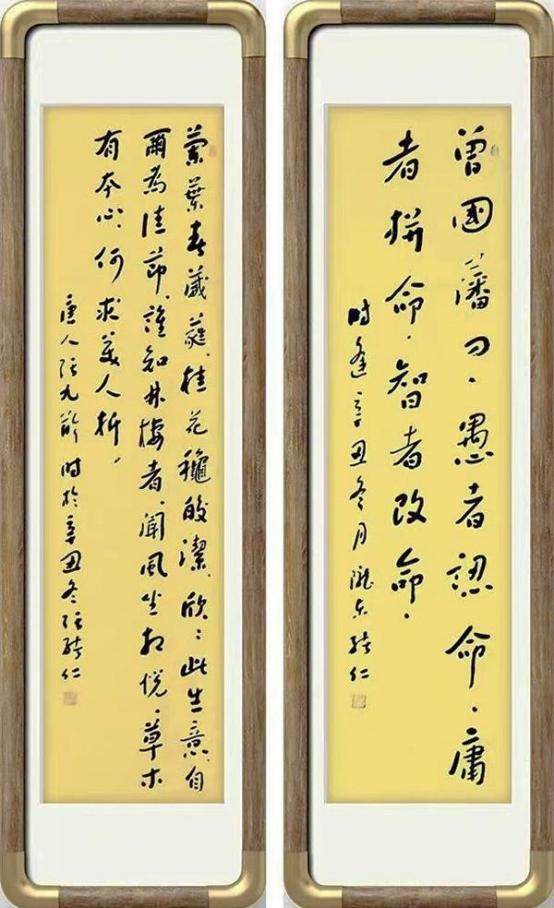 曾國藩曰、愚者認命、庸
者拼命、智者改命。
时逢辛丑冬月隴东仁
蘭葉春葳蕤、桂花穐皎潔、欣々此生意、自
爾為佳節、誰知林棲者、聞風坐相悅、草木
有本心、何求美人折。
唐人张九龄时於辛丑冬张仁